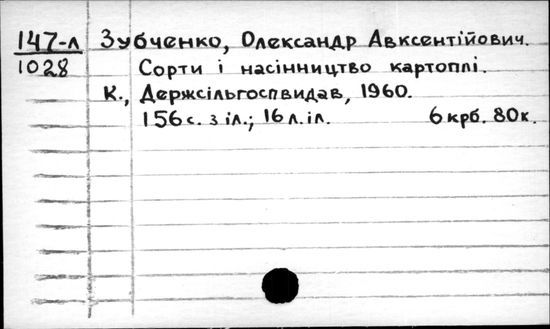 147-л Зубченко, Олександр Авксентійович.
1028 Сорти і насінництво картоплі.
К., Держсільгоспвидав, 1960.
156 с. з іл.; 16 л. іл. 6 крб. 80 к.